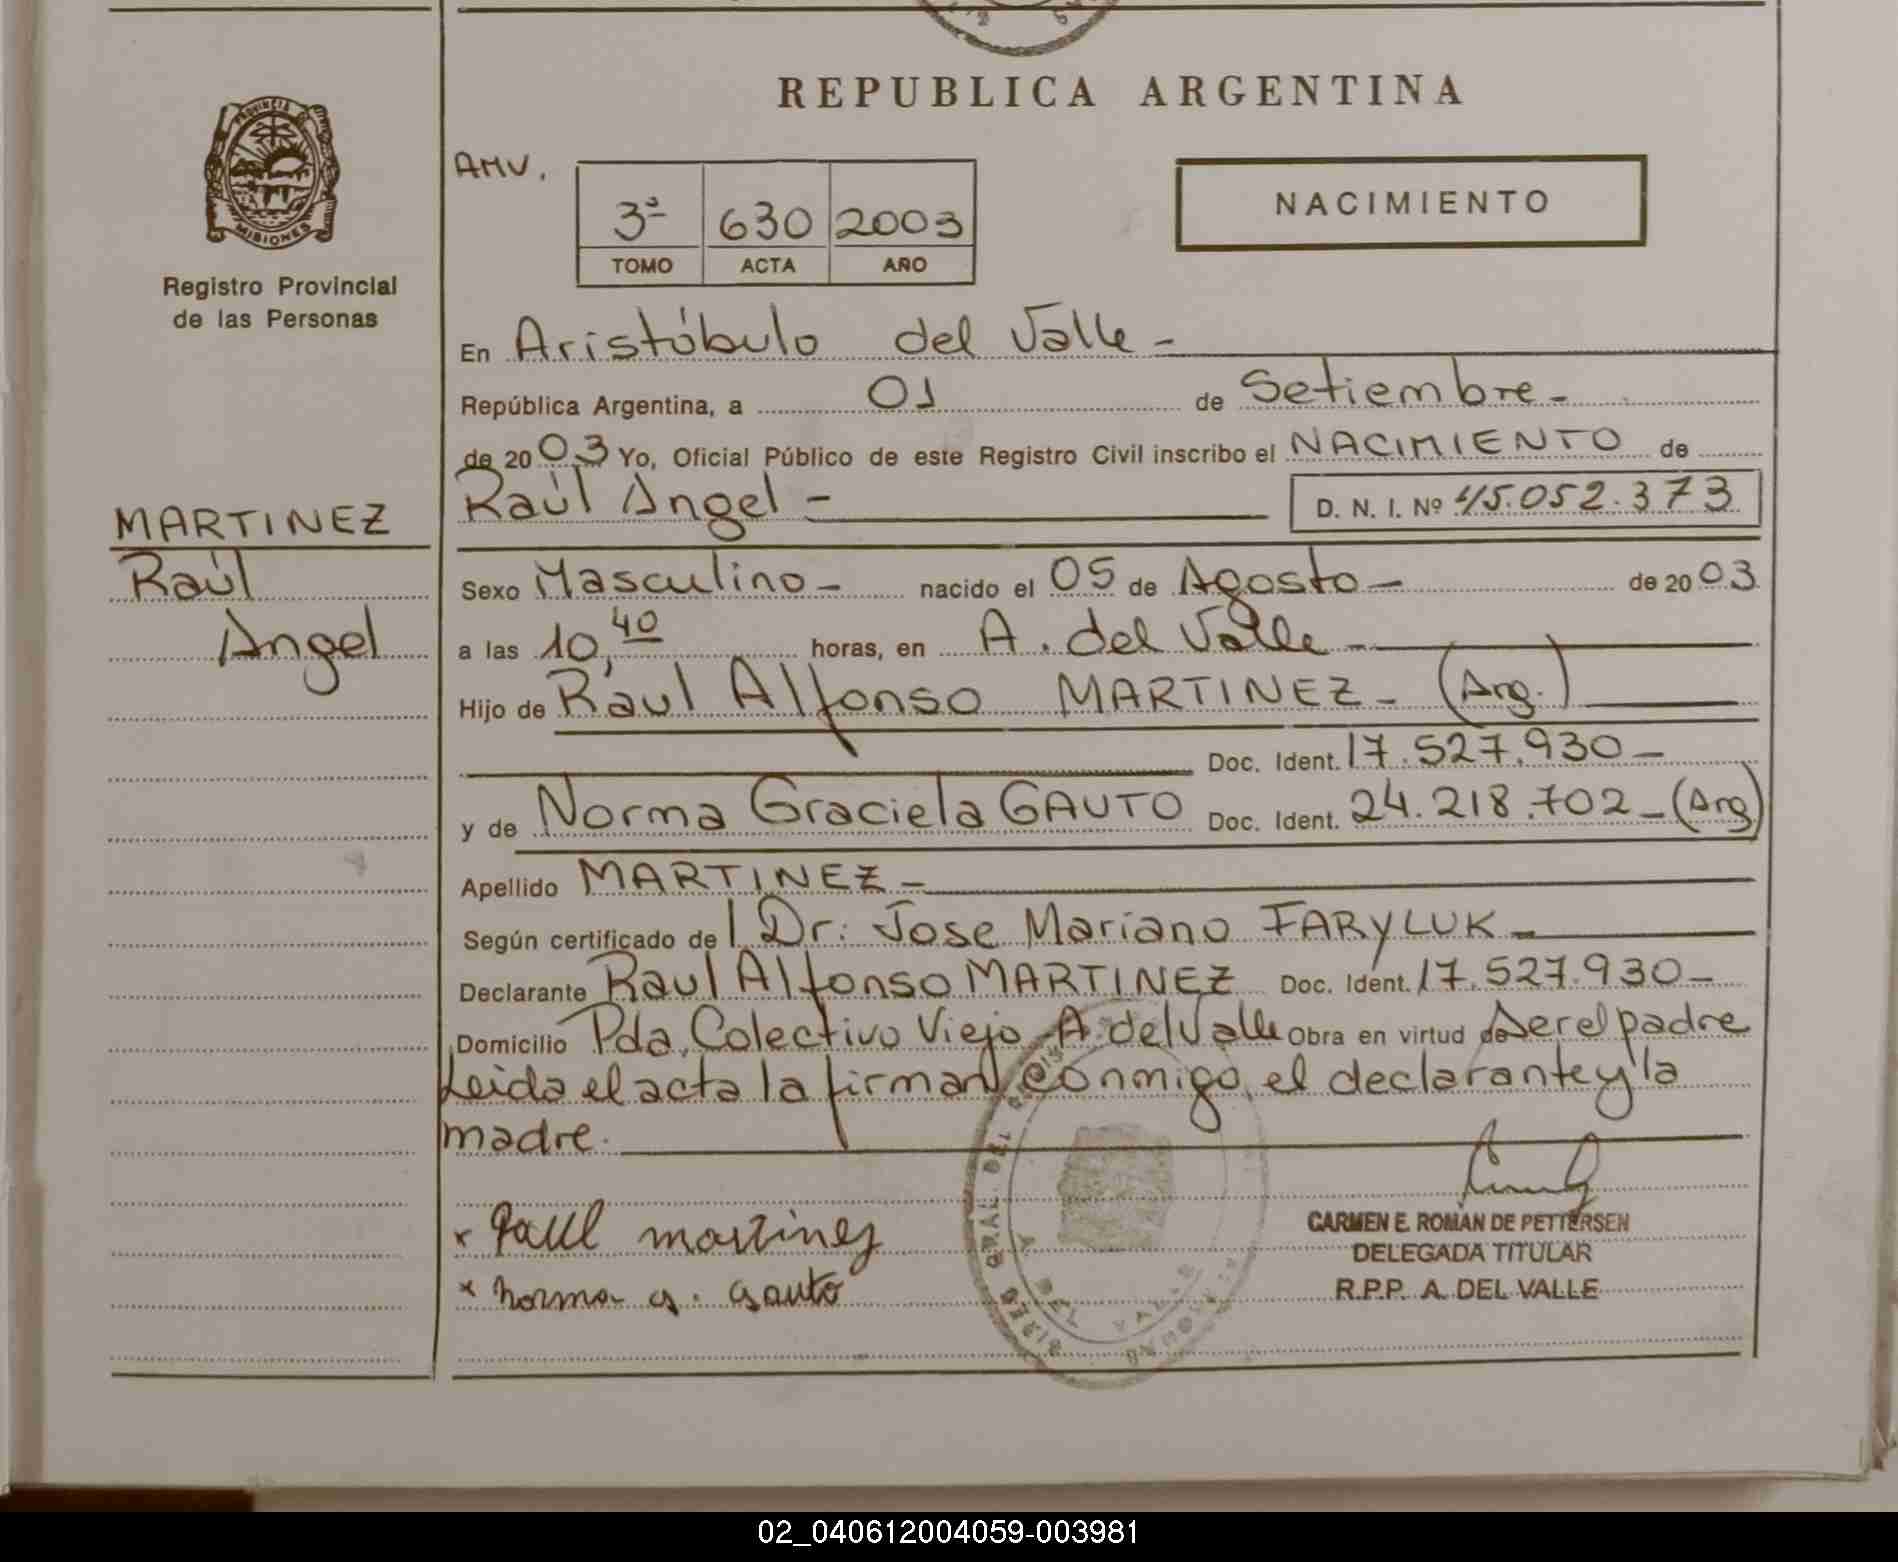 REPUBLICA ARGENTINA
PROVINCIA DE
MISIONES
Registro Provincial
de las Personas
AMV.
3ª 630 2003
TOMO ACTA AÑO
NACIMIENTO
En Aristóbulo del Valle -
República Argentina, a 01 de Setiembre -
de 2003 Yo, Oficial Público de este Registro Civil inscribo el NACIMIENTO de
Raúl Angel - D. N. I. Nº 45.052.373
MARTINEZ
Raúl
Angel
Sexo Masculino - nacido el 05 de Agosto - de 2003
a las 10,40 horas, en A. del Valle -
Hijo de Raul Alfonso MARTINEZ - (Arg.)
Doc. Ident. 17.527.930 -
y de Norma Graciela GAUTO Doc. Ident. 24.218.702 - (Arg)
Apellido MARTINEZ -
Según certificado del Dr. Jose Mariano FARYLUK -
Declarante Raul Alfonso MARTINEZ Doc. Ident. 17.527.930 -
Domicilio Pda. Colectivo Viejo A. del Valle Obra en virtud de ser el padre
Leida el acta la firman conmigo, el declarante y la
madre.
x Raul martinez
x norma g. gauto
CARMEN E. ROMAN DE PETTERSEN
DELEGADA TITULAR
R.P.P. A. DEL VALLE
02_040612004059-003981